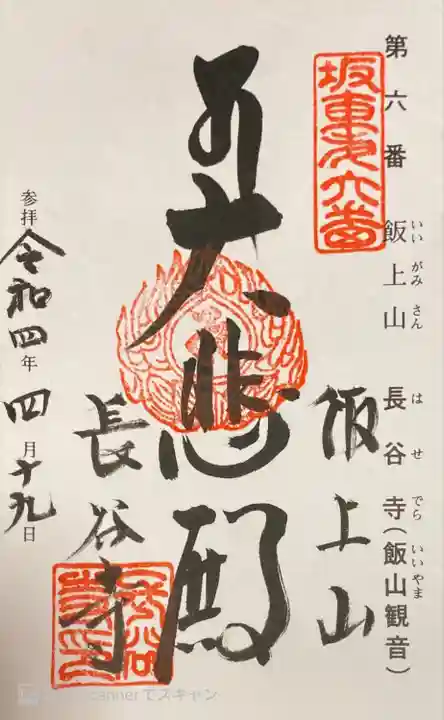 第六番 飯上山 長谷寺(飯山観音)
いいがみさん はせでら いいやま
坂東第六番
飯上山
大悲殿
長谷寺
参拝 令和四年 四月十九日
scannerでスキャン